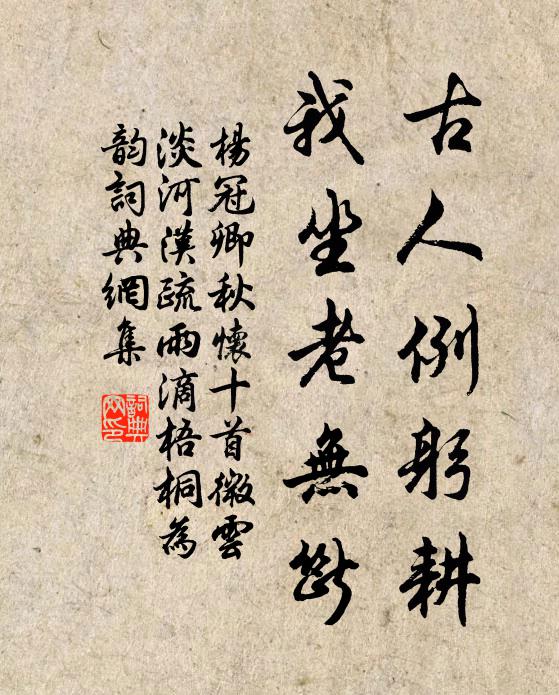 古人例躬耕
我坐老無斷
楊冠卿秋懷十首微雲
淡河漢疏雨滴梧桐為
韵詞典網集
詞典
网印